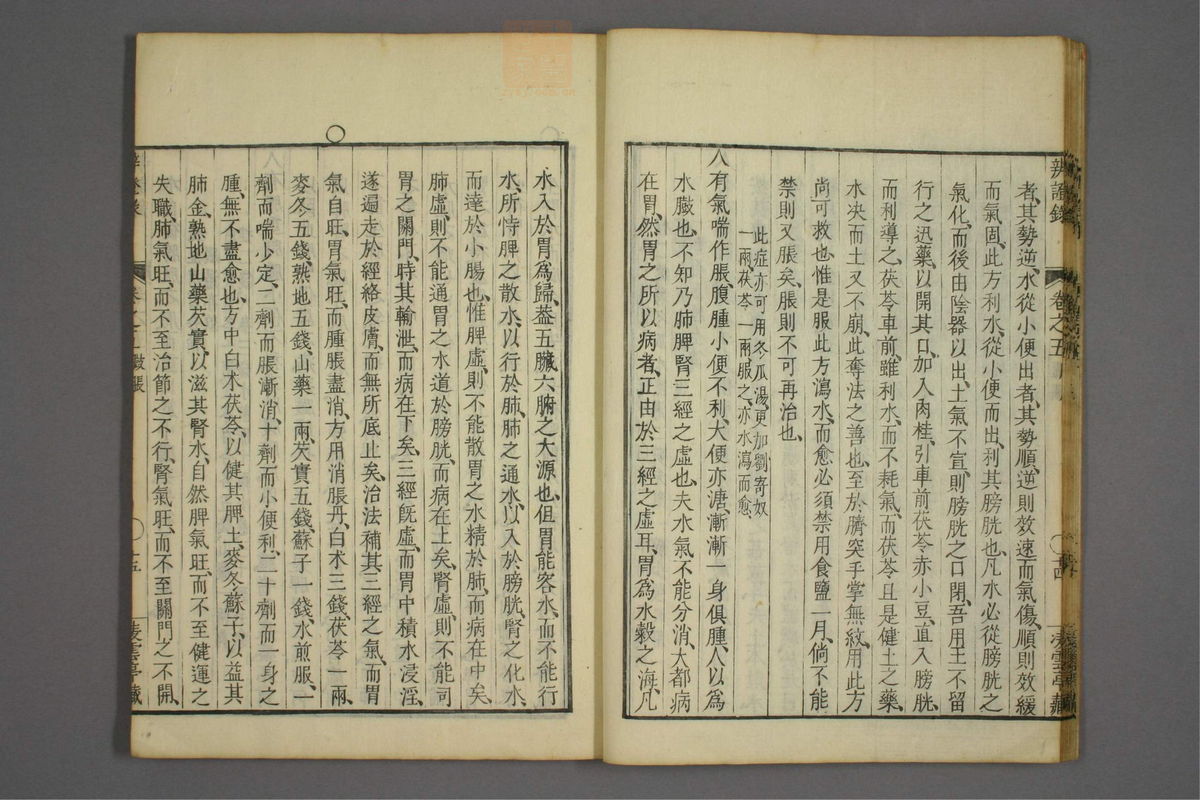 辨證錄 卷之五 十四 凌雲亭藏
者、其勢逆、水從小便出者、其勢順、逆則效速而氣傷、順則效緩
而氣固、此方利水、從小便而出、利其膀胱也、凡水必從膀胱之
氣化、而後由陰器以出、土氣不宣、則膀胱之口閉、吾用王不留
行之迅藥、以開其口、加入肉桂、引車前、茯苓、赤小豆、直入膀胱、
而利導之、茯苓、車前、雖利水、而不耗氣、而茯苓且是健土之藥、
水決而土又不崩、此奪法之善也、至於臍突手掌無紋、用此方
尚可救也、惟是服此方瀉水、而愈必須禁用食鹽一月、倘不能
禁、則又脹矣、脹則不可再治也、
此症亦可用冬瓜湯、更加劉寄奴
一兩、茯苓一兩服之、亦水瀉而愈、
人有氣喘作脹、腹腫小便不利、大便亦溏、漸漸一身俱腫、人以爲
水臌也、不知乃肺脾腎三經之虛也、夫水氣不能分消、大都病
在胃、然胃之所以病者、正由於三經之虛耳、胃爲水穀之海、凡
水入於胃爲歸、葢五臟六腑之大源也、但胃能容水、而不能行
水、所恃脾之散水、以行於肺、肺之通水、以入於膀胱、腎之化水、
而達於小腸也、惟脾虛、則不能散胃之水精於肺、而病在中矣、
肺虛、則不能通胃之水道於膀胱、而病在上矣、腎虛、則不能司
胃之關門、時其輸泄、而病在下矣、三經既虛、而胃中積水浸淫、
遂遍走於經絡皮膚、而無所底止矣、治法補其三經之氣、而胃
氣自旺、胃氣旺、而腫脹盡消、方用消脹丹、白术三錢、茯苓一兩、
麥冬五錢、熟地五錢、山藥一兩、芡實五錢、蘇子一錢、水煎服、一
劑而喘少定、二劑而脹漸消、十劑而小便利、二十劑而一身之
腫、無不盡愈也、方中白术、茯苓、以健其脾土、麥冬、蘇子、以益其
肺金、熟地、山藥、芡實、以滋其腎水、自然脾氣旺、而不至健運之
失職、肺氣旺、而不至治節之不行、腎氣旺、而不至關門之不開、
十五 凌雲亭藏